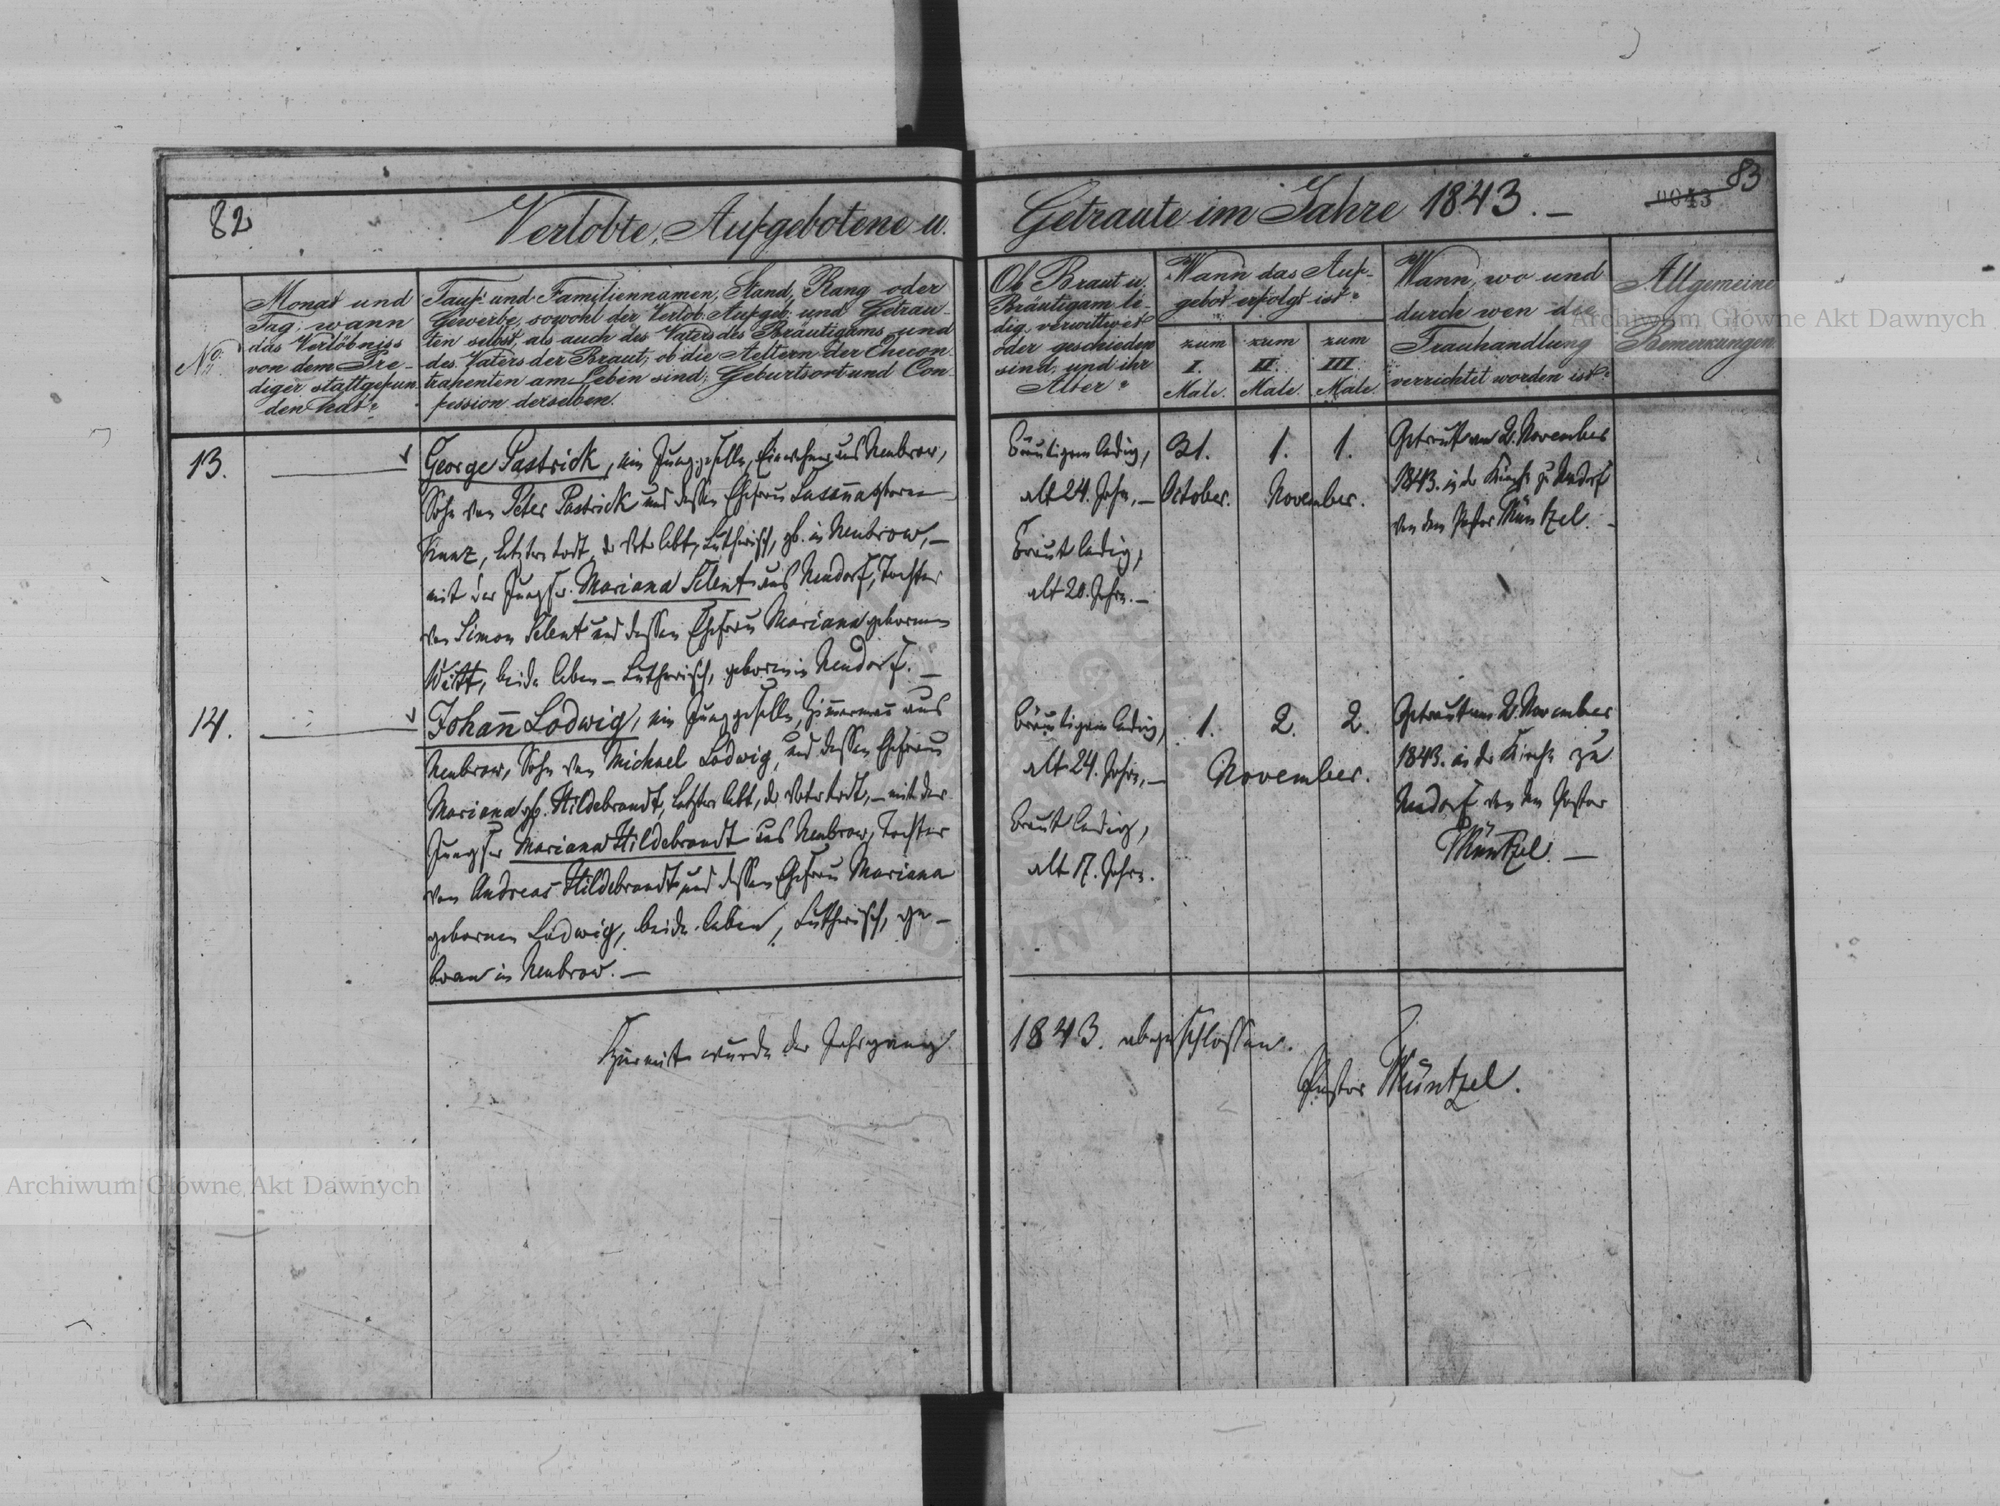 82
Verlobte, Aufgebotene u. Getraute im Jahre 1843. —
0043
83
No:
Monat und
Tag, wann
das Verlöbniss
von dem Pre-
diger stattgefun
den hat?
Tauf- und Familiennamen, Stand, Rang oder
Gewerbe, sowohl der Verlob. Aufgeb. und Getrau-
ten selbst, als auch des Vaters des Bräutigams und
des Vaters der Braut; ob die Aeltern der Ehecon-
trahenten am Leben sind; Geburtsort und Con-
fession derselben.
Ob Braut u.
Bräutigam le-
dig, verwittwet
oder geschieden
sind, und ihr
Alter?
Wann das Auf-
gebot erfolgt ist?
zum
I.
Male.
zum
II.
Male.
zum
III.
Male.
Wann, wo und
durch wen die
Trauhandlung
verrichtet worden ist?
Allgemeine
Bemerkungen
13.
George Pastrick, ein Junggeselle, Einwohner aus Neubrow,
Sohn von Peter Pastrick und dessen Ehefrau
Kunz, letztere todt, der Vater lebt, Lutherisch, geb. in Neubrow, —
mit der Jungfr. Mariana Selent aus Neudorf, Tochter
von Simon Selent und dessen Ehefrau Mariana gebornen
Witt, beide leben — Lutherisch, geboren in Neudorf. —
Bräutigam ledig,
alt 24. Jahr, —
Braut ledig,
alt 20. Jahr. —
31. 1. 1.
October. November.
Getraut am 2. November
1843. in der Kirche zu Neudorf
von dem Pastor Müntzel. —
14.
Johann Lodwig, ein Junggeselle, Zimmermann aus
Neubrow, Sohn von Michael Lodwig, und dessen Ehefrau
Mariana geb. Hildebrandt, letztere lebt, der Vater todt, — mit der
Jungfr Mariana Hildebrandt aus Neubrow, Tochter
von Andreas Hildebrandt und dessen Ehefrau Mariana
gebornen Lodwig, beide leben, Lutherisch, ge-
boren in Neubrow. —
Bräutigam ledig,
alt 24. Jahr, —
Braut ledig,
alt 17. Jahr.
1. 2. 2.
November.
Getraut am 2. November
1843. in der Kirche zu
Neudorf von dem Pastor
Müntzel. —
Hiermit wurde der Jahrgang 1843. abgeschlossen.
Pastor Müntzel.
Archiwum Główne Akt Dawnych
Archiwum Główne Akt Dawnych